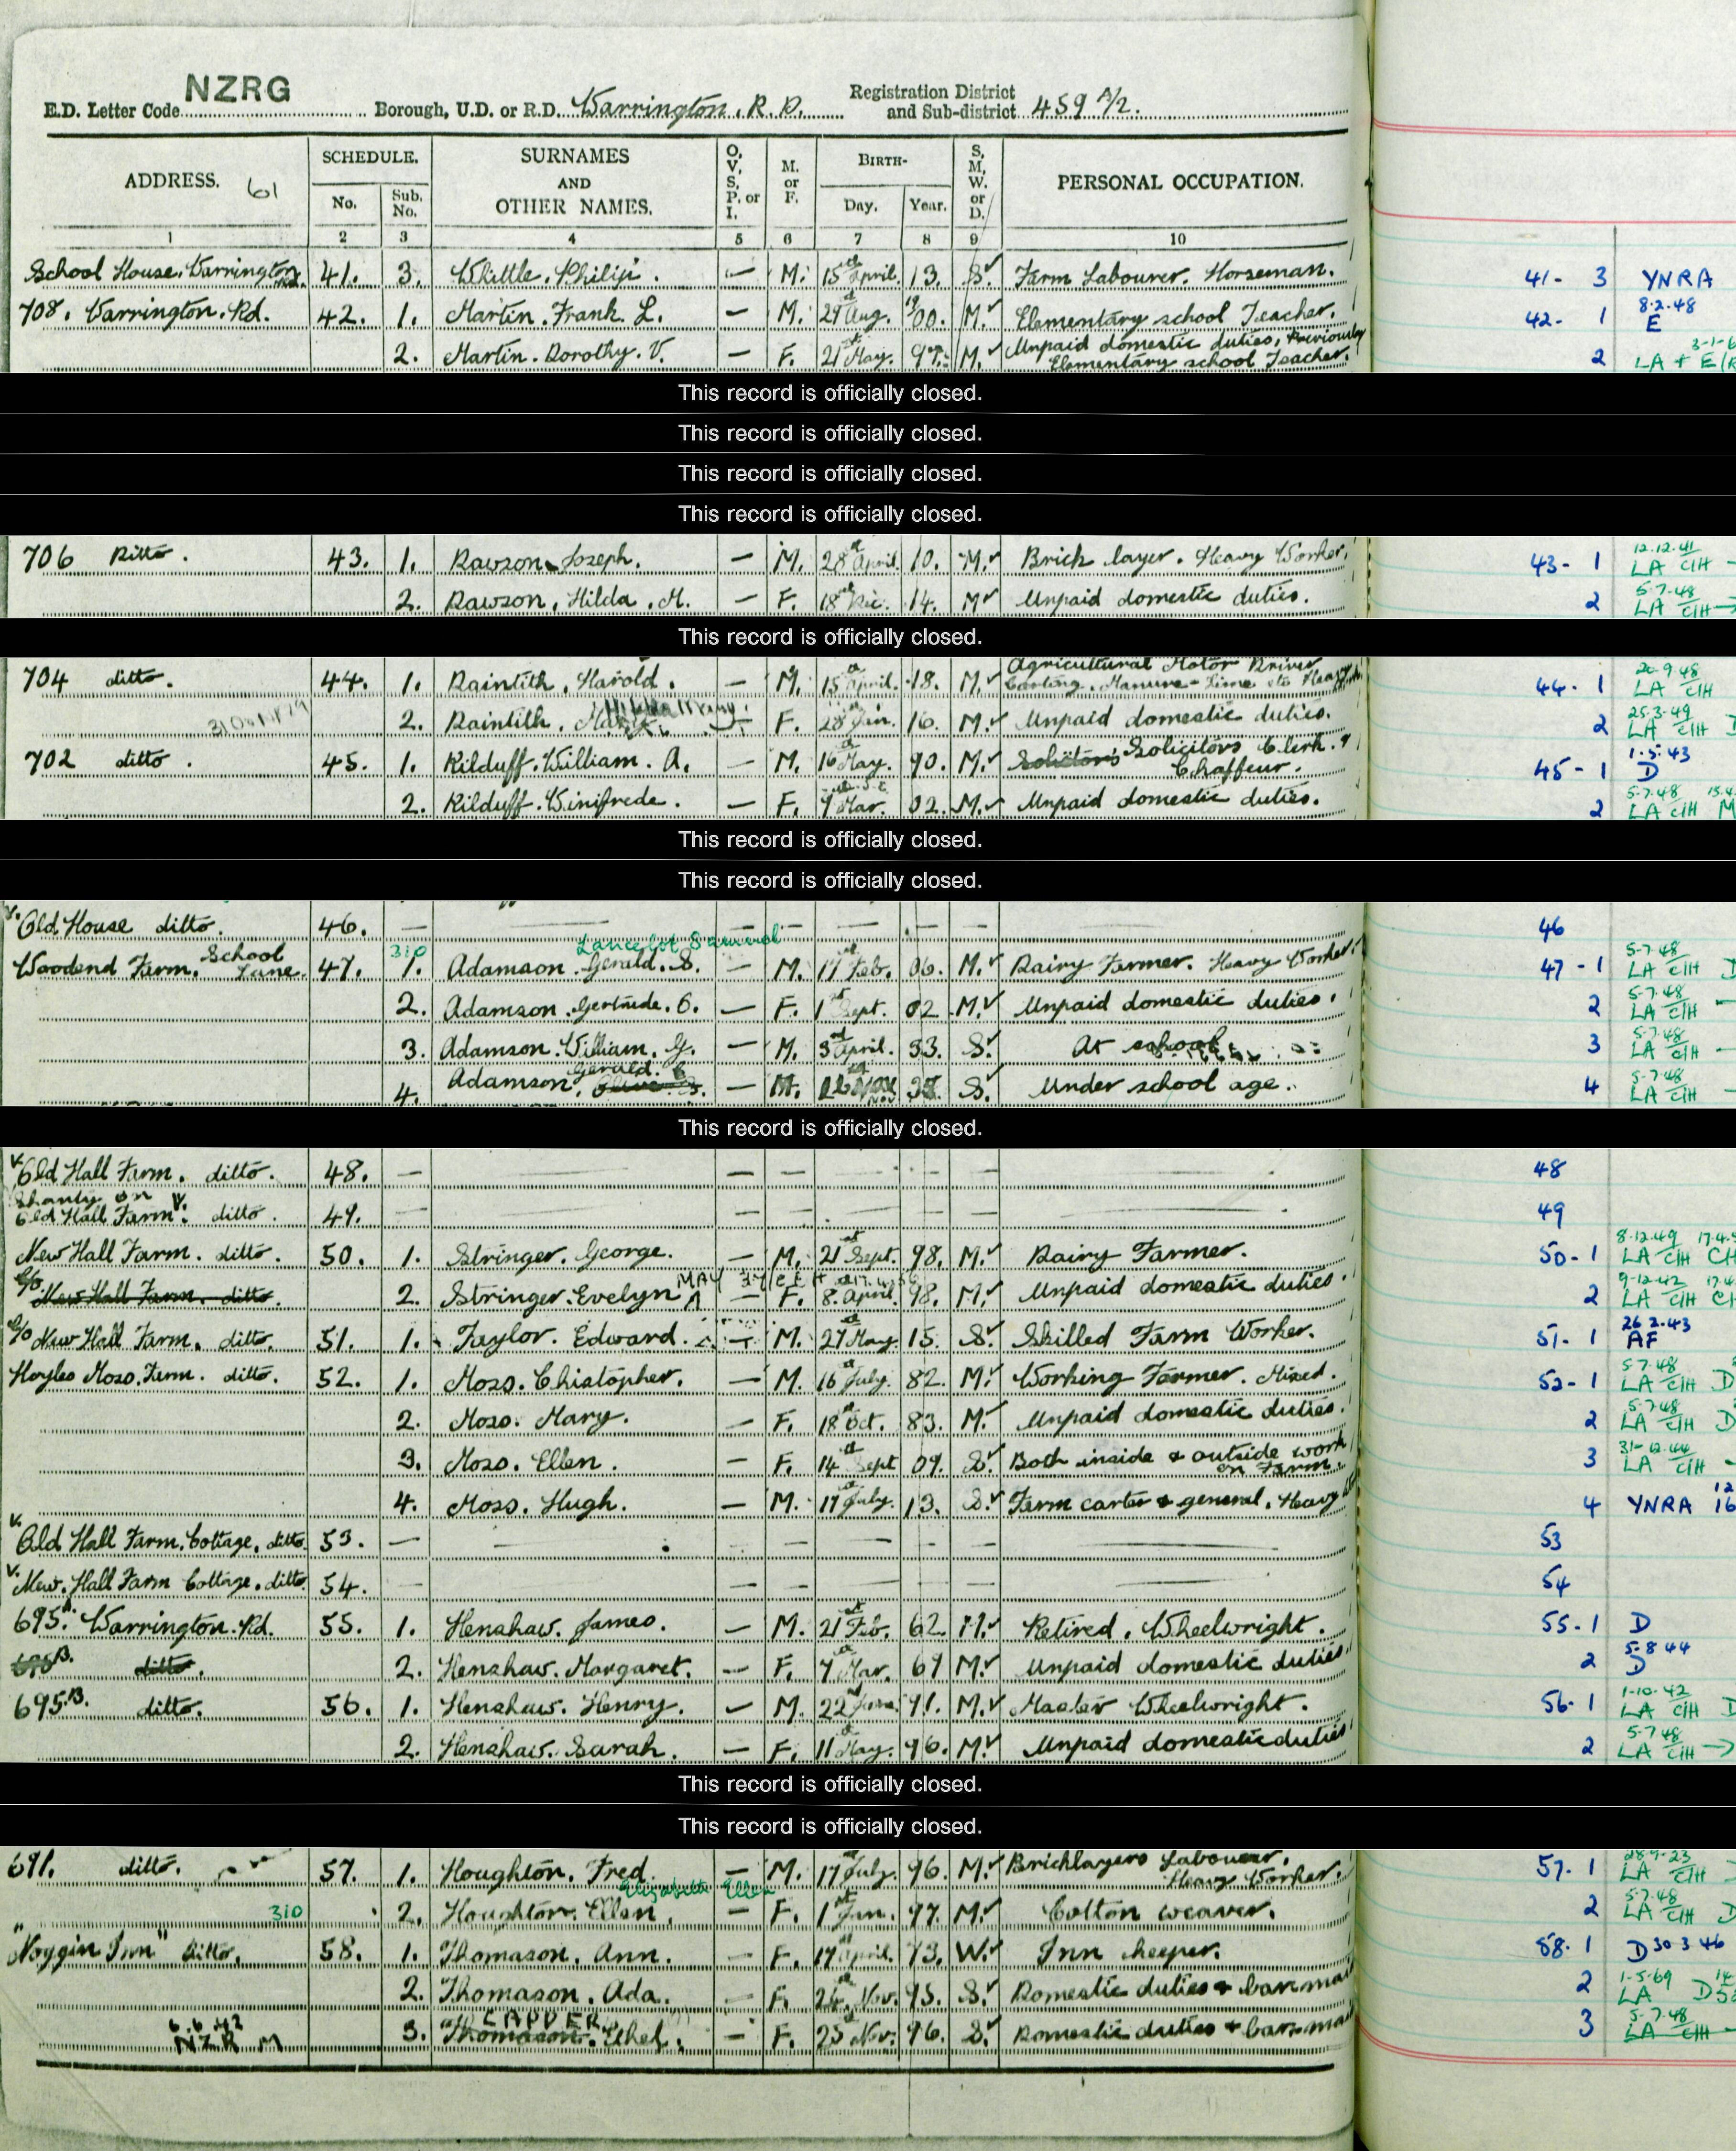 NZRG
E.D. Letter Code Borough, U.D. or R.D. Warrington. R. D. Registration District and Sub-district 459 A/2.
ADDRESS. 61 SCHEDULE. No. Sub. No. SURNAMES AND OTHER NAMES. O, V, S, P, or I. M. or F. BIRTH- Day. Year. S, M, W. or D. PERSONAL OCCUPATION.
1 2 3 4 5 6 7 8 9 10
School House. Warrington Rd. 41. 3. Whittle. Philip. — M. 15th April. 13. S. Farm Labourer. Horseman. 41- 3 YNRA
708. Warrington. Rd. 42. 1. Martin. Frank. L. — M. 29th Aug. 1900. M. Elementary school Teacher. 42- 1 8.2.48 E
2. Martin. Dorothy. V. — F. 21st May. M. Unpaid domestic duties, Previously Elementary school Teacher. 2 LA + E
This record is officially closed.
This record is officially closed.
This record is officially closed.
This record is officially closed.
706 Ditto. 43. 1. Dawson. Joseph. — M. 28th April. 10. M. Brick layer. Heavy Worker. 43- 1 12.12.41 LA CIH
2. Dawson, Hilda. M. — F. 18th Dec. 14. M. Unpaid domestic duties. 2 5.7.48 LA CIH
This record is officially closed.
704 ditto. 44. 1. Daintith, Harold. — M. 15th April. 18. M. Agricultural Motor Driver Carting. Manure - Lime etc Heavy 44- 1 20-9-48 LA CIH
2. Daintith, — F. 28th Jan. 16. M. Unpaid domestic duties. 2 25.3.49 LA CIH D
702 ditto. 45. 1. Kilduff. William. A. — M. 16th May. 90. M. Solicitors Solicitors Clerk. & Chaffeur. 45- 1 1.5.43 D
2. Kilduff. Winifrede. — F. 9 Mar. 02. M. Unpaid domestic duties. 2 5-7.48 LA CIH M
This record is officially closed.
This record is officially closed.
v. Old House ditto. 46. — — — — — — — 46
Woodend Farm. School Lane. 47. 310 1. Adamson. Gerald. S. Lancelot Samuel — M. 17th Feb. 06. M. Dairy Farmer. Heavy Worker. 47-1 5-7-48 LA CIH
2. Adamson. Gertrude. C. — F. 1st Sept. 02. M. Unpaid domestic duties. 2 5.7.48 LA CIH
3. Adamson. William. G. — M. 3rd April. 33. S. At school 3 5.7.48 LA CIH
4. Adamson, Gerald. — M. Nov 35. S. Under school age. 4 5-7-48 LA CIH
This record is officially closed.
v. Old Hall Farm. ditto. 48. — — — — — — — 48
Shanty on Old Hall Farm. v. ditto. 49. — — — — — — — 49
New Hall Farm. ditto. 50. 1. Stringer. George. — M. 21st Sept. 98. M. Dairy Farmer. 50-1 8.12.49 LA CIH
c/o New Hall Farm. ditto. 2. Stringer. Evelyn MAY — F. 8. April 98. M. Unpaid domestic duties. 2 9-12-42 LA CIH
c/o New Hall Farm. ditto. 51. 1. Taylor. Edward. — M. 27th May 15. S. Skilled Farm Worker. 51- 1 26 2.43 AF
Hoyles Moss. Farm. ditto. 52. 1. Moss. Chistopher. — M. 16th July. 82. M. Working Farmer. Mixed. 52- 1 5.7.48 LA CIH D
2. Moss. Mary. — F. 18th Oct. 83. M. Unpaid domestic duties. 2 5.7.48 LA CIH D
3. Moss. Ellen. — F. 14th Sept 09. S. Both inside & outside work on Farm. 3 31-12-44 LA CIH
4. Moss. Hugh. — M. 17th July. 13. S. Farm carter & general. Heavy 4 YNRA
v. Old Hall Farm. Cottage. ditto. 53. — — — — — — — 53
v. New. Hall Farm Cottage. ditto. 54. — — — — — — — 54
695A. Warrington. Rd. 55. 1. Henshaw. James. — M. 21st Feb. 62. M. Retired. Wheelwright. 55-1 D
695B. ditto. 2. Henshaw. Margaret. — F. 7th Mar. 69 M. Unpaid domestic duties 2 5-8 44 D
695B. ditto. 56. 1. Henshaw. Henry. — M. 22nd June 91. M. Master Wheelwright. 56-1 1-10-42 LA CIH D
2. Henshaw. Sarah. — F. 11th May. 96. M. Unpaid domestic duties 2 5-7 48 LA CIH
This record is officially closed.
This record is officially closed.
691. ditto. 57. 1. Houghton, Fred. — M. 17th July. 96. M. Bricklayers Labourer. Heavy Worker. 57-1 LA CIH
310 2. Houghton. Ellen. Elizabeth Ellen — F. 1st Jan. 97. M. Cotton weaver. 2 5.7.48 LA CIH D
"Noggin Inn" ditto. 58. 1. Thomason. Ann. — F. 17th April. 73. W. Inn keeper. 58-1 D 30 3 46
2. Thomason. Ada. — F. 26th Nov. 95. S. Domestic duties & barmaid 2 1-5-69 LA
6.6.42 NZR M 3. Thomason. CAPPER. Ethel. — F. 25 Nov. 96. S. Domestic duties & barmaid 3 5-7-48 LA CIH